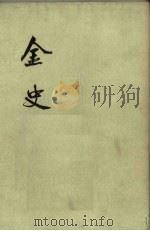 金史
mtoou.info